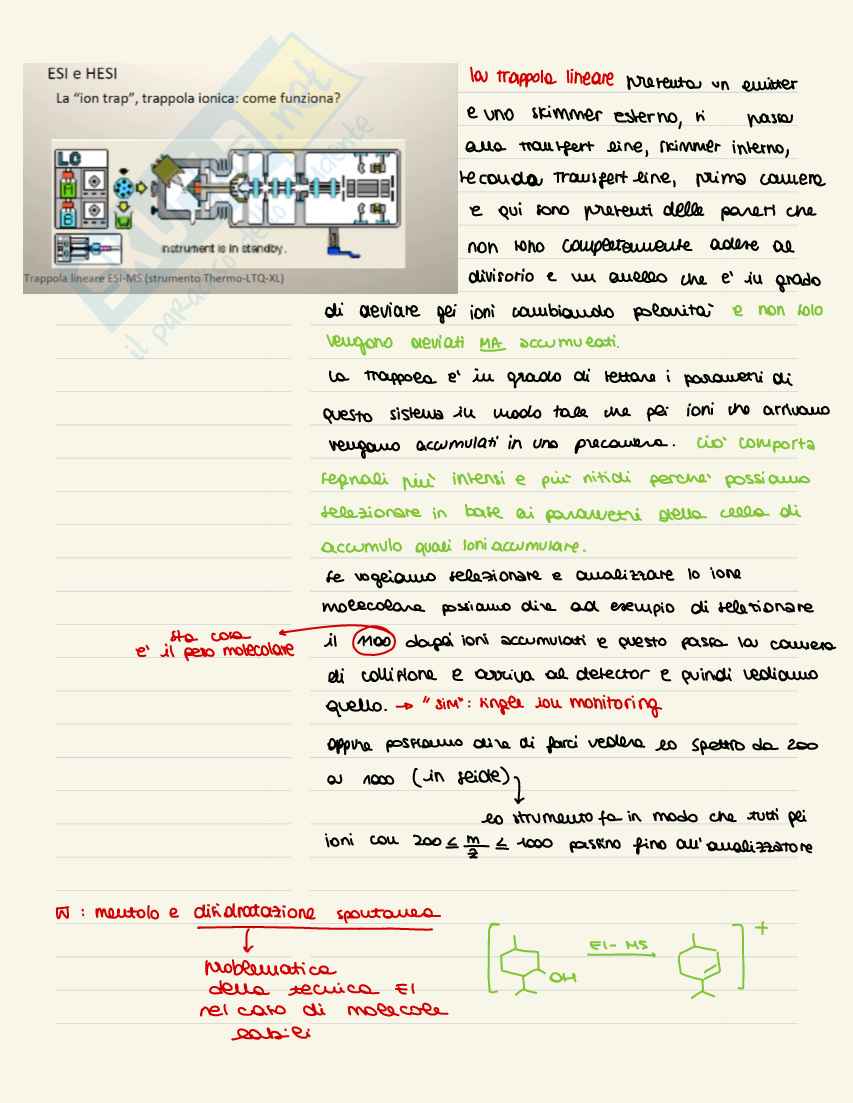 ESI e HESI
La "ion trap", trappola ionica: come funziona?
LC
A
B
instrument is in standby.
Trappola lineare ESI-MS (strumento Thermo-LTQ-XL)
la trappola lineare presenta un emitter
e uno skimmer esterno, si passa
alla transfert line, skimmer interno,
seconda transfert line, prima camera
e qui sono presenti delle pareti che
non sono completamente adese al
divisorio e un anello che e' in grado
di deviare gli ioni cambiando polarita' e non solo
vengono deviati MA accumulati.
la trappola e' in grado di settare i parametri di
questo sistema in modo tale che gli ioni che arrivano
vengano accumulati in una precamera. cio' comporta
segnali piu' intensi e piu' nitidi perche' possiamo
selezionare in base ai parametri della cella di
accumulo quali ioni accumulare.
se vogliamo selezionare e analizzare lo ione
molecolare possiamo dire ad esempio di selezionare
il 1100 dagli ioni accumulati e questo passa la camera
sta cosa
e' il peso molecolare
di collisione e arriva al detector e quindi vediamo
quello. → "SIM": single ion monitoring
oppure possiamo dire di farci vedere lo spettro da 200
a 1000 (in seide)
lo strumento fa in modo che tutti gli
ioni con 200 ≤ m/z ≤ 1000 passino fino all'analizzatore
: mentolo e disidratazione spontanea
problematica
della tecnica EI
nel caso di molecole
labili
EI-MS
OH
+